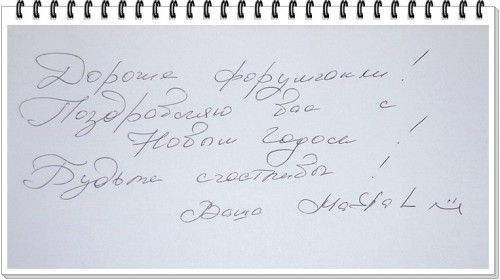 Дорогие форумчане!
Поздравляю вас с
Новым годом!
Будьте счастливы!
Ваша